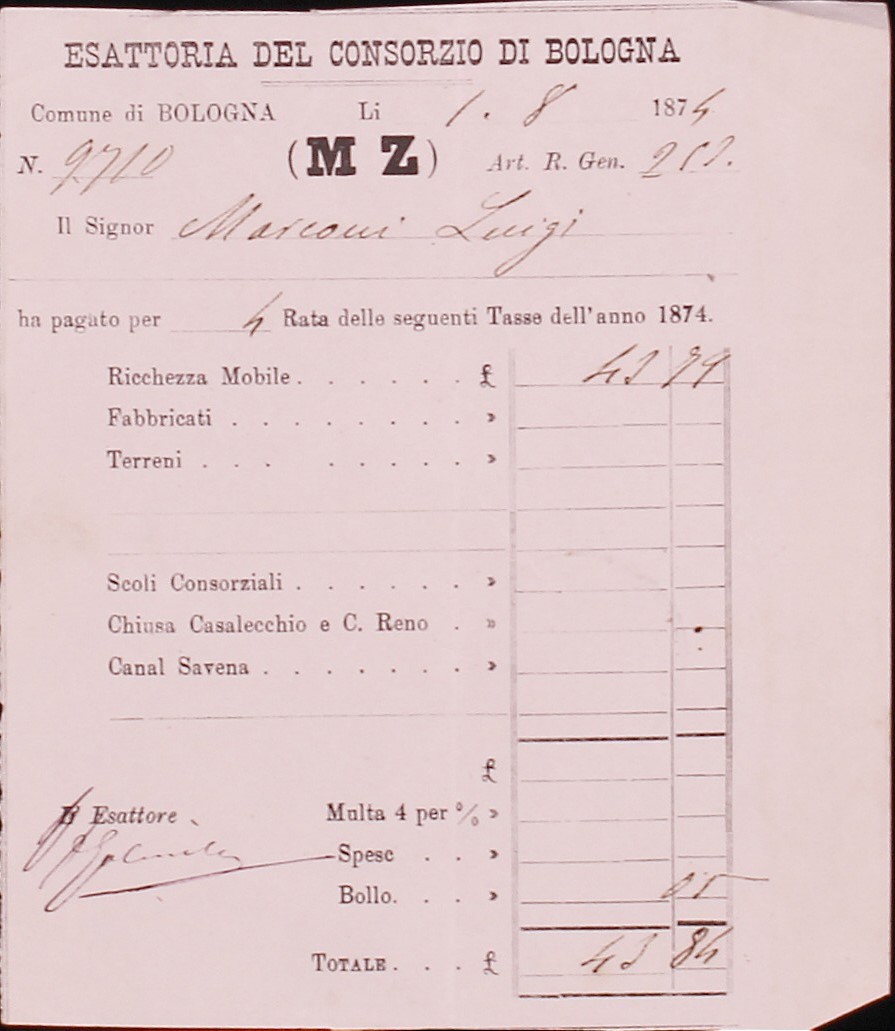 ESATTORIA DEL CONSORZIO DI BOLOGNA
Comune di BOLOGNA Li 1. 8 1874
N. 9710 (M Z) Art. R. Gen.
Il Signor Marconi Luigi
ha pagato per 4 Rata delle seguenti Tasse dell'anno 1874.
Ricchezza Mobile. . . . . . £ 43 79
Fabbricati . . . . . . . . . »
Terreni . . . . . . . . »
Scoli Consorziali . . . . . . »
Chiusa Casalecchio e C. Reno . »
Canal Savena . . . . . . . »
£
Il Esattore Multa 4 per % »
Spese . . »
Bollo. . . » 05
TOTALE . . . £ 43 84